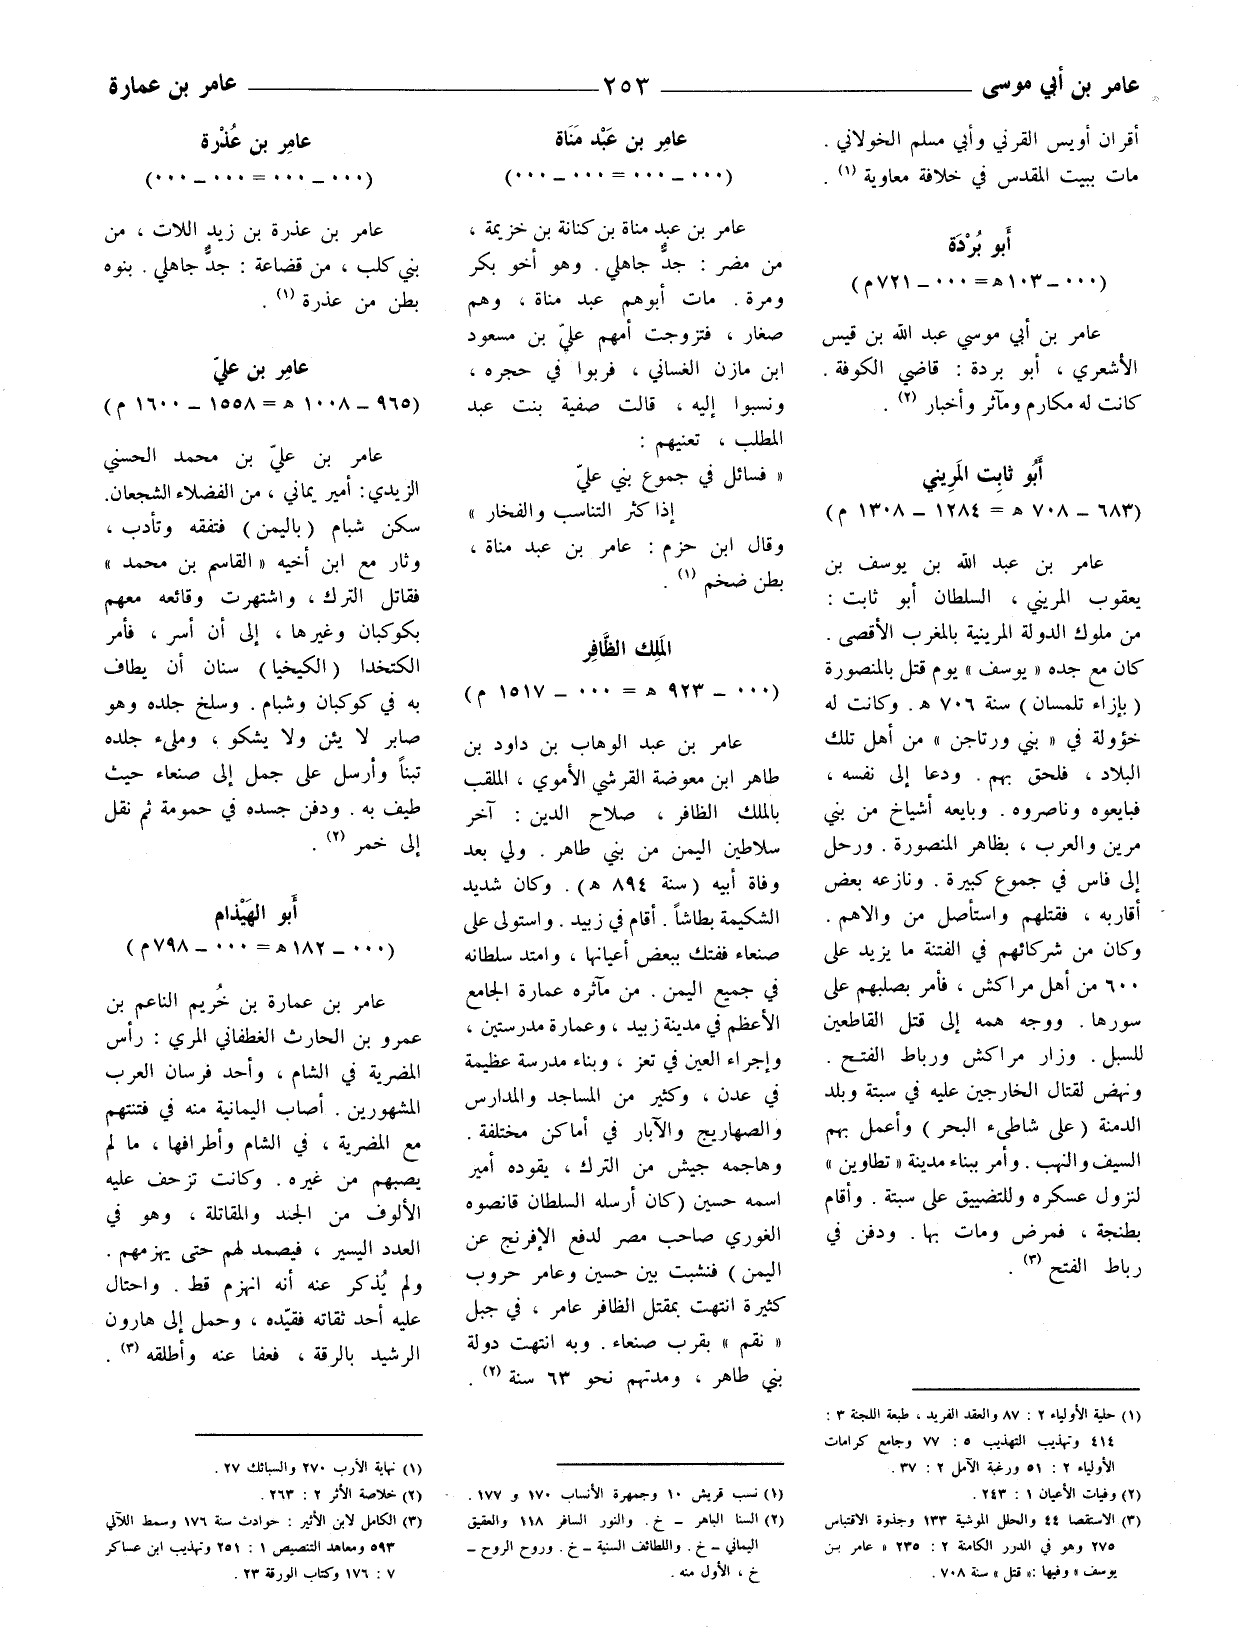 عامر بن أبي موسى ٢٥٣ عامر بن عمارة
أقران أويس القرني وأبي مسلم الخولاني .
مات ببيت المقدس في خلافة معاوية (١) .
أَبو بُرْدَة
(٠٠٠ ــ ١٠٣ هـ = ٠٠٠ ــ ٧٢١ م)
عامر بن أبي موسي عبد الله بن قيس
الأشعري ، أبو بردة : قاضي الكوفة .
كانت له مكارم ومآثر وأخبار (٢) .
أَبُو ثابِت المَرِيني
(٦٨٣ ــ ٧٠٨ هـ = ١٢٨٤ ــ ١٣٠٨ م)
عامر بن عبد الله بن يوسف بن
يعقوب المريني ، السلطان أبو ثابت :
من ملوك الدولة المرينية بالمغرب الأقصى .
كان مع جده « يوسف » يوم قتل بالمنصورة
( بإزاء تلمسان ) سنة ٧٠٦ هـ . وكانت له
خؤولة في « بني ورتاجن » من أهل تلك
البلاد ، فلحق بهم . ودعا إلى نفسه ،
فبايعوه وناصروه . وبايعه أشياخ من بني
مرين والعرب ، بظاهر المنصورة . ورحل
إلى فاس في جموع كبيرة . ونازعه بعض
أقاربه ، فقتلهم واستأصل من والاهم .
وكان من شركائهم في الفتنة ما يزيد على
٦٠٠ من أهل مراكش ، فأمر بصلبهم على
سورها . ووجه همه إلى قتل القاطعين
للسبل . وزار مراكش ورباط الفتح .
ونهض لقتال الخارجين عليه في سبتة وبلد
الدمنة ( على شاطىء البحر ) وأعمل بهم
السيف والنهب . وأمر ببناء مدينة « تطاوين »
لنزول عسكره وللتضييق على سبتة . وأقام
بطنجة ، فمرض ومات بها . ودفن في
رباط الفتح (٣) .
(١) حلية الأولياء ٢ : ٨٧ والعقد الفريد ، طبعة اللجنة ٣ :
٤١٤ وتهذيب التهذيب ٥ : ٧٧ وجامع كرامات
الأولياء ٢ : ٥١ ورغبة الآمل ٢ : ٣٧ .
(٢) وفيات الأعيان ١ : ٢٤٣ .
(٣) الاستقصا ٤٤ والحلل الموشية ١٣٣ وجذوة الاقتباس
٢٧٥ وهو في الدرر الكامنة ٢ : ٢٣٥ « عامر بن
يوسف » وفيها : « قتل » سنة ٧٠٨ .
عامِر بن عَبْد مَنَاة
(٠٠٠ ــ ٠٠٠ = ٠٠٠ ــ ٠٠٠)
عامر بن عبد مناة بن كنانة بن خزيمة ،
من مضر : جدٌّ جاهلي . وهو أخو بكر
ومرة . مات أبوهم عبد مناة ، وهم
صغار ، فتزوجت أمهم عليّ بن مسعود
ابن مازن الغساني ، فربوا في حجره ،
ونسبوا إليه ، قالت صفية بنت عبد
المطلب ، تعنيهم :
« فسائل في جموع بني عليّ
إذا كثر التناسب والفخار »
وقال ابن حزم : عامر بن عبد مناة ،
بطن ضخم (١) .
المَلِك الظَّافِر
(٠٠٠ ــ ٩٢٣ هـ = ٠٠٠ ــ ١٥١٧ م)
عامر بن عبد الوهاب بن داود بن
طاهر ابن معوضة القرشي الأموي ، الملقب
بالملك الظافر ، صلاح الدين : آخر
سلاطين اليمن من بني طاهر . ولي بعد
وفاة أبيه (سنة ٨٩٤ هـ) . وكان شديد
الشكيمة بطاشاً . أقام في زبيد . واستولى على
صنعاء ففتك ببعض أعيانها ، وامتد سلطانه
في جميع اليمن . من مآثره عمارة الجامع
الأعظم في مدينة زبيد ، وعمارة مدرستين ،
وإجراء العين في تعز ، وبناء مدرسة عظيمة
في عدن ، وكثير من المساجد والمدارس
والصهاريج والآبار في أماكن مختلفة .
وهاجمه جيش من الترك ، يقوده أمير
اسمه حسين (كان أرسله السلطان قانصوه
الغوري صاحب مصر لدفع الإفرنج عن
اليمن ) فنشبت بين حسين وعامر حروب
كثيرة انتهت بمقتل الظافر عامر ، في جبل
« نقم » بقرب صنعاء . وبه انتهت دولة
بني طاهر ، ومدتهم نحو ٦٣ سنة (٢) .
(١) نسب قريش ١٠ وجمهرة الأنساب ١٧٠ و ١٧٧ .
(٢) السنا الباهر ــ خ . والنور السافر ١١٨ والعقيق
اليماني ــ خ . واللطائف السنية ــ خ . وروح الروح ــ
خ ، الأول منه .
عامِر بن عُذْرة
(٠٠٠ ــ ٠٠٠ = ٠٠٠ ــ ٠٠٠)
عامر بن عذرة بن زيد اللات ، من
بني كلب ، من قضاعة : جدٌّ جاهلي . بنوه
بطن من عذرة (١) .
عامِر بن عليّ
(٩٦٥ ــ ١٠٠٨ هـ = ١٥٥٨ ــ ١٦٠٠ م)
عامر بن عليّ بن محمد الحسني
الزيدي : أمير يماني ، من الفضلاء الشجعان.
سكن شبام (باليمن) فتفقه وتأدب ،
وثار مع ابن أخيه « القاسم بن محمد »
فقاتل الترك ، واشتهرت وقائعه معهم
بكوكبان وغيرها ، إلى أن أسر ، فأمر
الكتخدا ( الكيخيا ) سنان أن يطاف
به في كوكبان وشبام . وسلخ جلده وهو
صابر لا يئن ولا يشكو ، وملىء جلده
تبناً وأرسل على جمل إلى صنعاء حيث
طيف به . ودفن جسده في حمومة ثم نقل
إلى خمر (٢) .
أَبو الهَيْذام
(٠٠٠ ــ ١٨٢ هـ = ٠٠٠ ــ ٧٩٨ م)
عامر بن عمارة بن خُريم الناعم بن
عمرو بن الحارث الغطفاني المري : رأس
المضرية في الشام ، وأحد فرسان العرب
المشهورين . أصاب اليمانية منه في فتنتهم
مع المضرية ، في الشام وأطرافها ، ما لم
يصبهم من غيره . وكانت تزحف عليه
الألوف من الجند والمقاتلة ، وهو في
العدد اليسير ، فيصمد لهم حتى يهزمهم .
ولم يُذكر عنه أنه انهزم قط . واحتال
عليه أحد ثقاته فقيّده ، وحمل إلى هارون
الرشيد بالرقة ، فعفا عنه وأطلقه (٣) .
(١) نهاية الأرب ٢٧٠ والسبائك ٢٧ .
(٢) خلاصة الأثر ٢ : ٢٦٣ .
(٣) الكامل لابن الأثير : حوادث سنة ١٧٦ وسمط اللآلي
٥٩٣ ومعاهد التنصيص ١ : ٢٥١ وتهذيب ابن عساكر
٧ : ١٧٦ وكتاب الورقة ٢٣ .